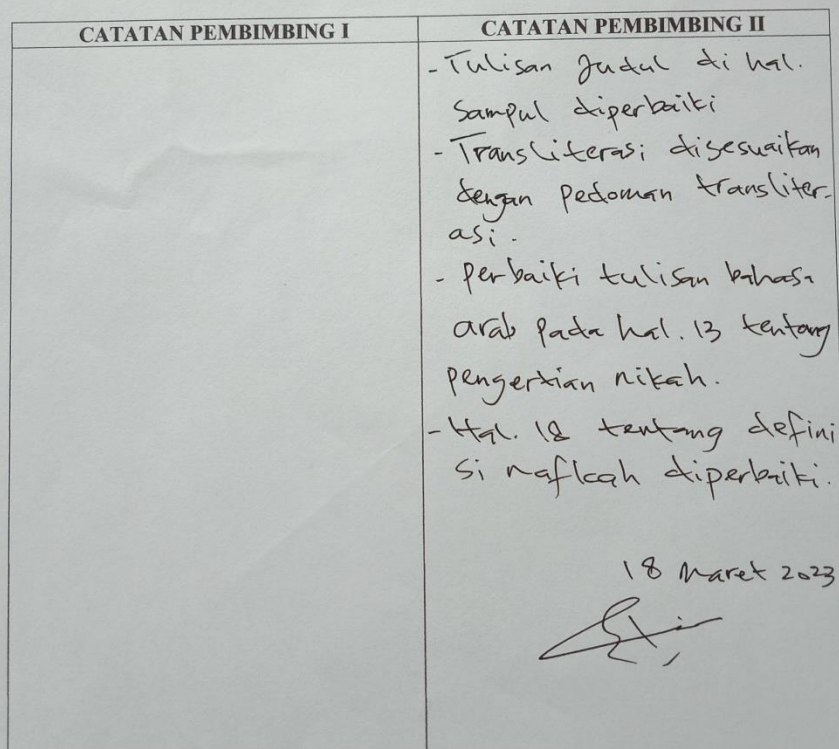 CATATAN PEMBIMBING I
CATATAN PEMBIMBING II
- Tulisan Judul di hal.
Sampul diperbaiki
- Transliterasi disesuaikan
dengan Pedoman transliter-
asi.
- Perbaiki tulisan bahasa
arab pada hal. 13 tentang
pengertian nikah.
- Hal. 18 tentang defini
si nafkah diperbaiki.
18 Maret 2023